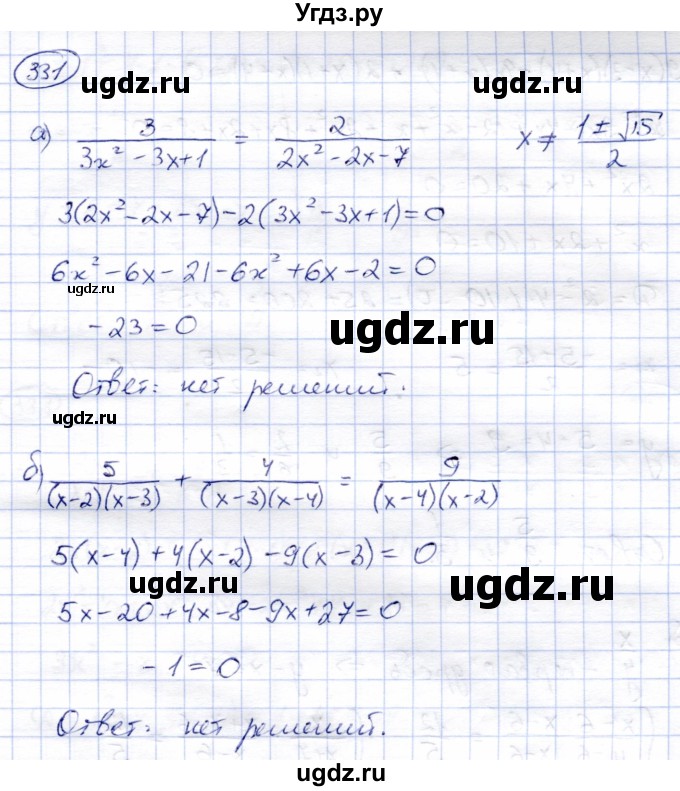 Угдз.ру
331
ugdz.ru ugdz.ru
а) 3/(3x² - 3x + 1) = 2/(2x² - 2x - 7) x ≠ (1 ± √15)/2
3(2x² - 2x - 7) - 2(3x² - 3x + 1) = 0
6x² - 6x - 21 - 6x² + 6x - 2 = 0
ugdz.ru
- 23 = 0 ugdz.ru
Ответ: нет решений.
ugdz.ru
б) 5/((x-2)(x-3)) + 4/((x-3)(x-4)) = 9/((x-4)(x-2))
5(x-4) + 4(x-2) - 9(x-3) = 0
ugdz.ru ugdz.ru
5x - 20 + 4x - 8 - 9x + 27 = 0
- 1 = 0
Ответ: нет решений.
ugdz.ru
ugdz.ru